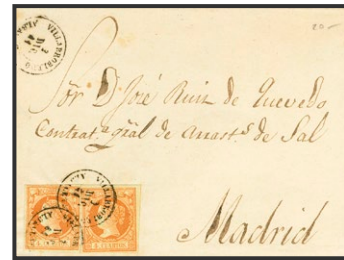 20-
VILLARROBLEDO
Sõr Dn José Ruiz de Quevedo
Contrata. gral de arrastˢ de Sal
Madrid
VILLARROBLEDO
4 CUARTOS